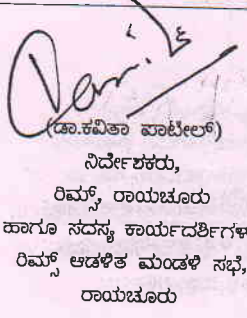 (ಡಾ.ಕವಿತಾ ಪಾಟೀಲ್)
ನಿರ್ದೇಶಕರು,
ರಿಮ್ಸ್, ರಾಯಚೂರು
ಹಾಗೂ ಸದಸ್ಯ ಕಾರ್ಯದರ್ಶಿಗಳ
ರಿಮ್ಸ್ ಆಡಳಿತ ಮಂಡಳಿ ಸಭೆ,
ರಾಯಚೂರು